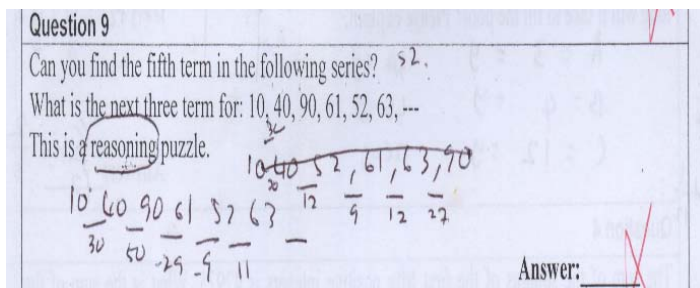 Question 9
Can you find the fifth term in the following series? 52.
What is the next three term for: 10, 40, 90, 61, 52, 63, ---
30
This is a reasoning puzzle.
10 40, 52, 61, 63, 90
30 12 9 12 27
10 40 90 61 52 63
30 50 -29 -9 11
Answer: